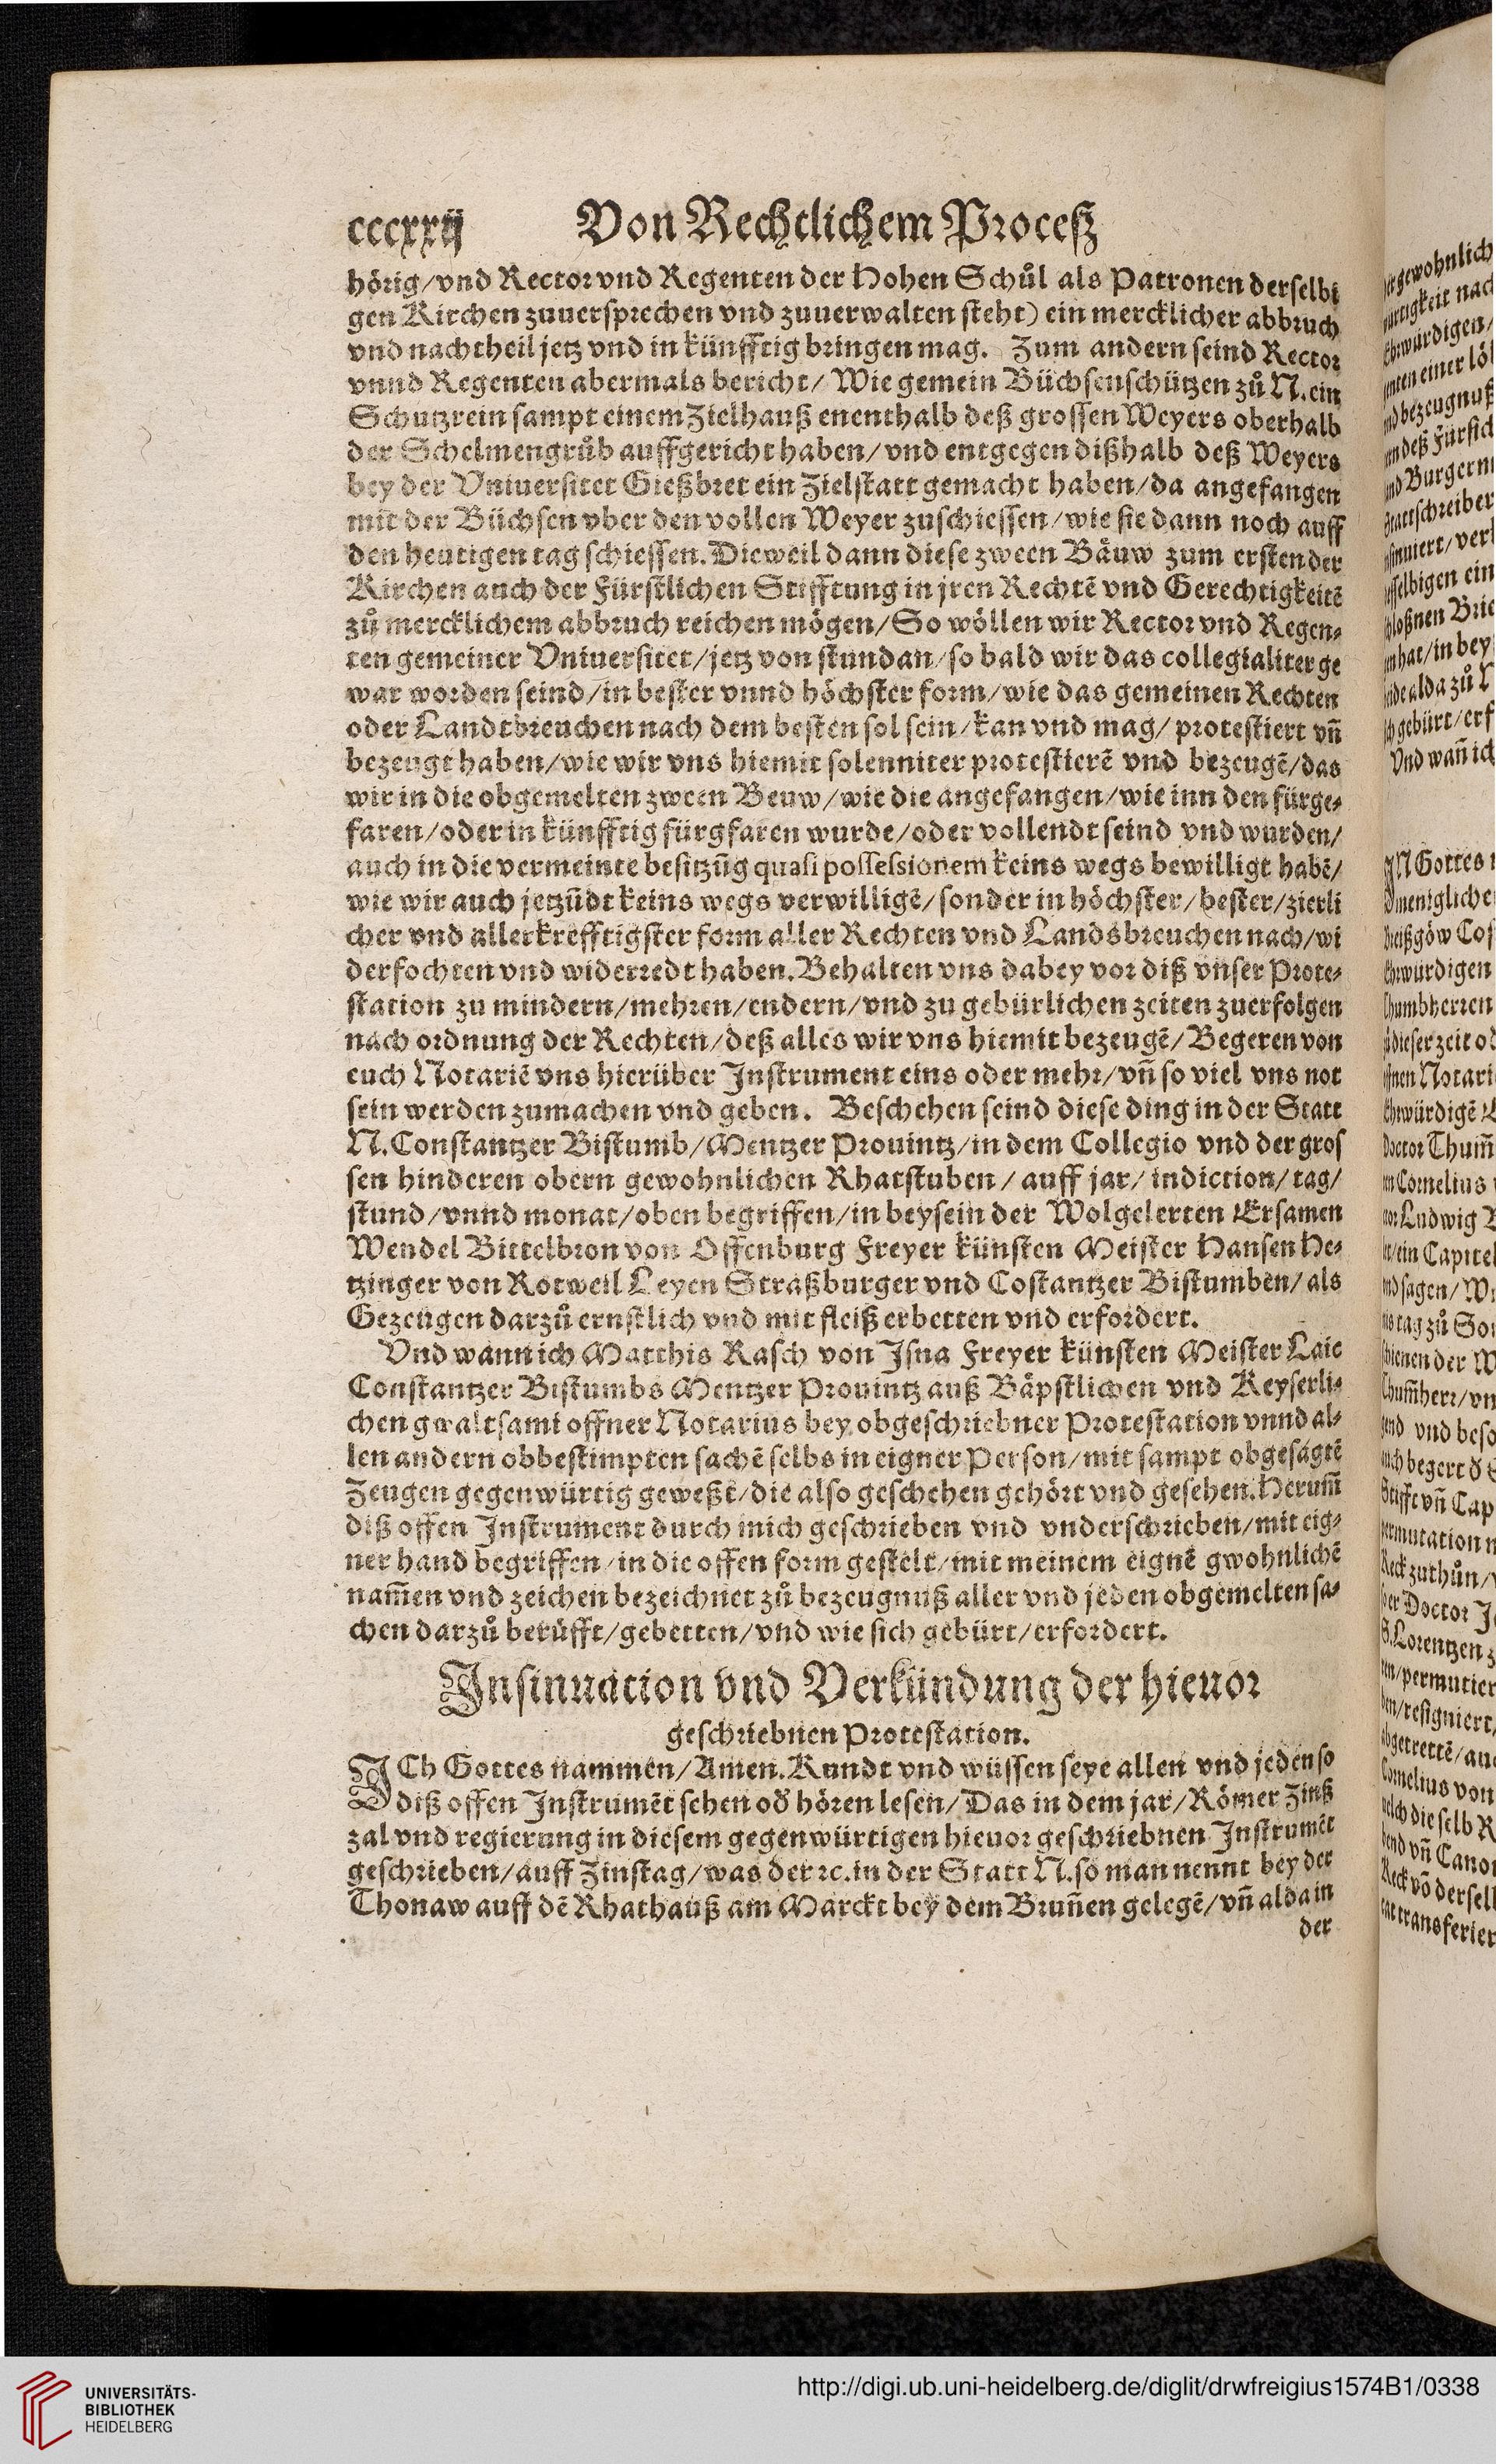 cccxxij Von Rechtlichem Proceß
hörig/vnd Rector vnd Regenten der Hohen Schůl als Patronen derselbi
gen Kirchen zuuersprechen vnd zuuerwalten steht) ein mercklicher abbruch
vnd nachtheil jetz vnd in künfftig bringen mag. Zum andern seind Rector
vnnd Regenten abermals bericht/ Wie gemein Büchsenschützen zů N. ein
Schutzrein sampt einem Zielhauß enenthalb deß grossen Weyers oberhalb
der Schelmengrůb auffgericht haben/ vnd entgegen dißhalb deß Weyers
bey der Vniuersitet Gießbret ein Zielstatt gemacht haben/da angefangen
mit der Büchsen vber den vollen Weyer zuschiessen/wie sie dann noch auff
den heutigen tag schiessen. Dieweil dann diese zween Bäuw zum ersten der
Kirchen auch der Fürstlichen Stifftung in jren Rechtē vnd Gerechtigkeitē
zů mercklichem abbruch reichen mögen/So wöllen wir Rector vnd Regen⸗
ten gemeiner Vniuersitet/jetz von stundan/so bald wir das collegialiter ge
war worden seind/in bester vnnd höchster form/wie das gemeinen Rechten
oder Landtbreuchen nach dem besten sol sein/kan vnd mag/ protestiert vn̄
bezeugt haben/wie wir vns hiemit solenniter protestierē vnd bezeugē/das
wir in die obgemelten zween Beuw/wie die angefangen/wie inn den fürge⸗
faren/oder in künfftig fürgfaren wurde/oder vollendt seind vnd wurden/
auch in die vermeinte besitzūg quasi possessionem keins wegs bewilligt habē/
wie wir auch jetzūdt keins wegs verwilligē/sonder in höchster/bester/zierli
cher vnd allerkrefftigster form aller Rechten vnd Landsbreuchen nach/wi
derfochten vnd widerredt haben. Behalten vns dabey vor diß vnser Prote⸗
station zu mindern/mehren/endern/vnd zu gebürlichen zeiten zuerfolgen
nach ordnung der Rechten/deß alles wir vns hiemit bezeugē/Begeren von
euch Notariē vns hierüber Instrument eins oder mehr/vn̄ so viel vns not
sein werden zumachen vnd geben. Beschehen seind diese ding in der Statt
N. Constantzer Bistumb/Mentzer Prouintz/in dem Collegio vnd der gros
sen hinderen obern gewohnlichen Rhatstuben / auff jar/ indiction/ tag/
stund/vnnd monat/oben begriffen/in beysein der Wolgelerten Ersamen
Wendel Bittelbron von Offenburg Freyer künsten Meister Hansen He⸗
tzinger von Rotweil Leyen Straßburger vnd Costantzer Bistumben/ als
Gezeugen darzů ernstlich vnd mit fleiß erbetten vnd erfordert.
Vnd wann ich Matthis Rasch von Jsna Freyer künsten Meister Laie
Constantzer Bistumbs Mentzer Prouintz auß Bäpstlichen vnd Keyserli⸗
chen gwaltsami offner Notarius bey obgeschriebner Protestation vnnd al⸗
len andern obbestimpten sachē selbs in eigner Person/mit sampt obgesagtē
Zeugen gegenwürtig geweßt/die also geschehen gehört vnd gesehen. Herum̄
diß offen Instrument durch mich geschrieben vnd vnderschrieben/mit eig⸗
ner hand begriffen/in die offen form gestelt/mit meinem eignē gwohnlichē
nam̄en vnd zeichen bezeichnet zů bezeugnuß aller vnd jeden obgemelten sa⸗
chen darzů berüfft/gebetten/vnd wie sich gebürt/erfordert.
Insinuation vnd Verkündung der hieuor
geschriebnen Protestation.
ICh Gottes nammen/Amen. Kundt vnd wüssen seye allen vnd jeden so
diß offen Instrumēt sehen od̄ hören lesen/Das in dem jar/Römer Zinß
zal vnd regierung in diesem gegenwürtigen hieuor geschriebnen Instrumēt
geschrieben/auff Zinstag/was der ꝛc. in der Statt N. so man nennt bey der
Thonaw auff dē Rhathauß am Marckt bey dem Brun̄en gelegē/vn̄ alda in
der
UNIVERSITÄTS-
BIBLIOTHEK
HEIDELBERG
http://digi.ub.uni-heidelberg.de/diglit/drwfreigius1574B1/0338